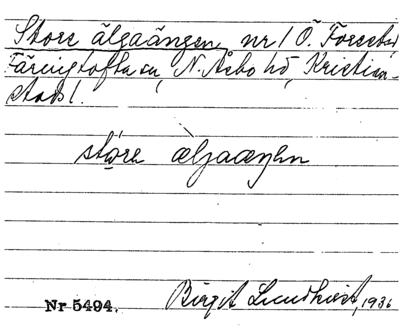 Store älgaängen, nr 1 Ö. Forestad
Färingtofta sn, N. Åsbo hd, Kristian-
stads l.
störe äljaæŋen
Nr 5494. Birgit Lundkvist, 1936